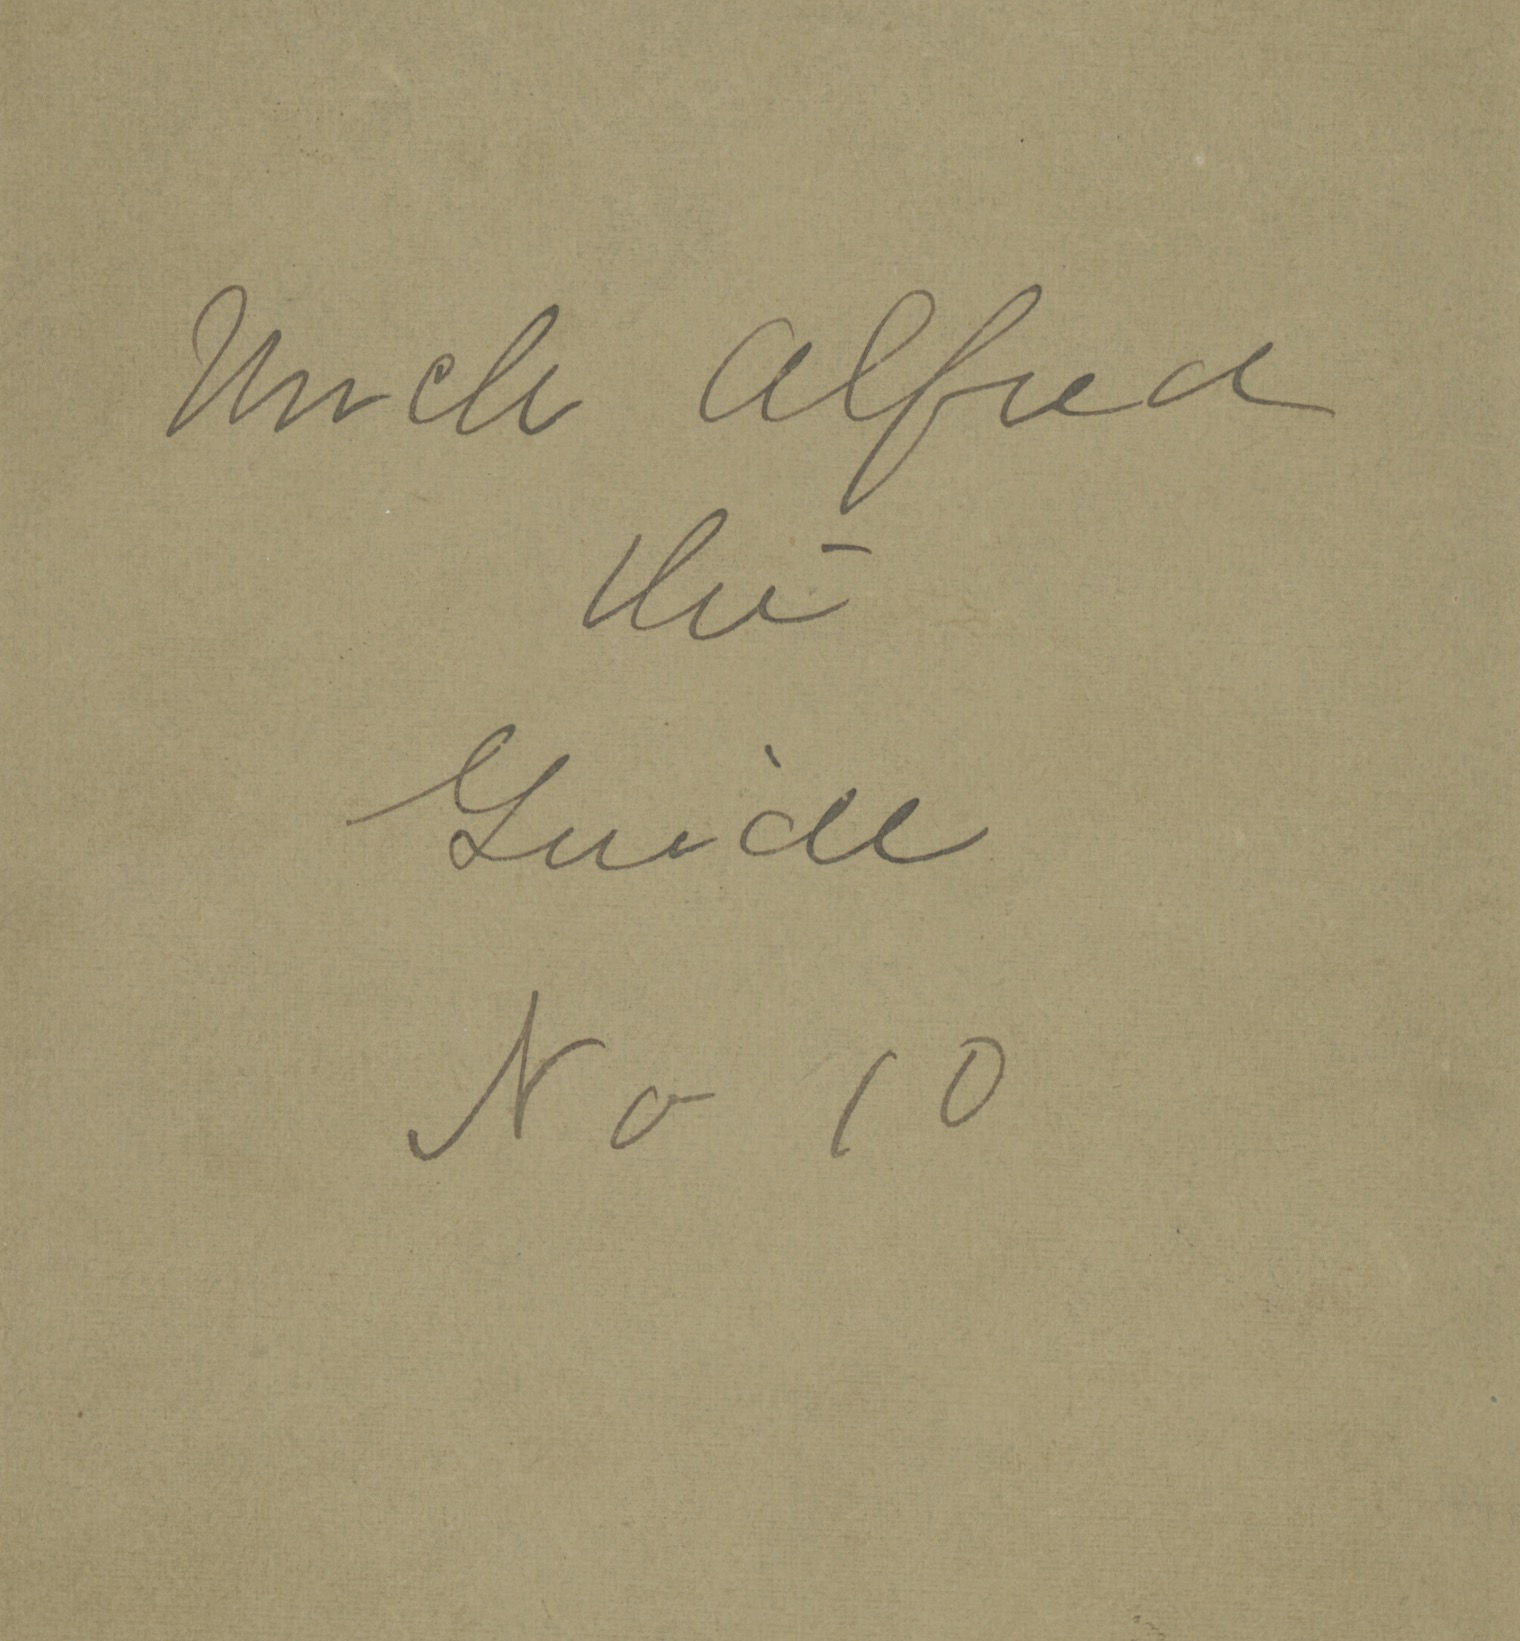 Uncle Alfred
the
Guide
No 10